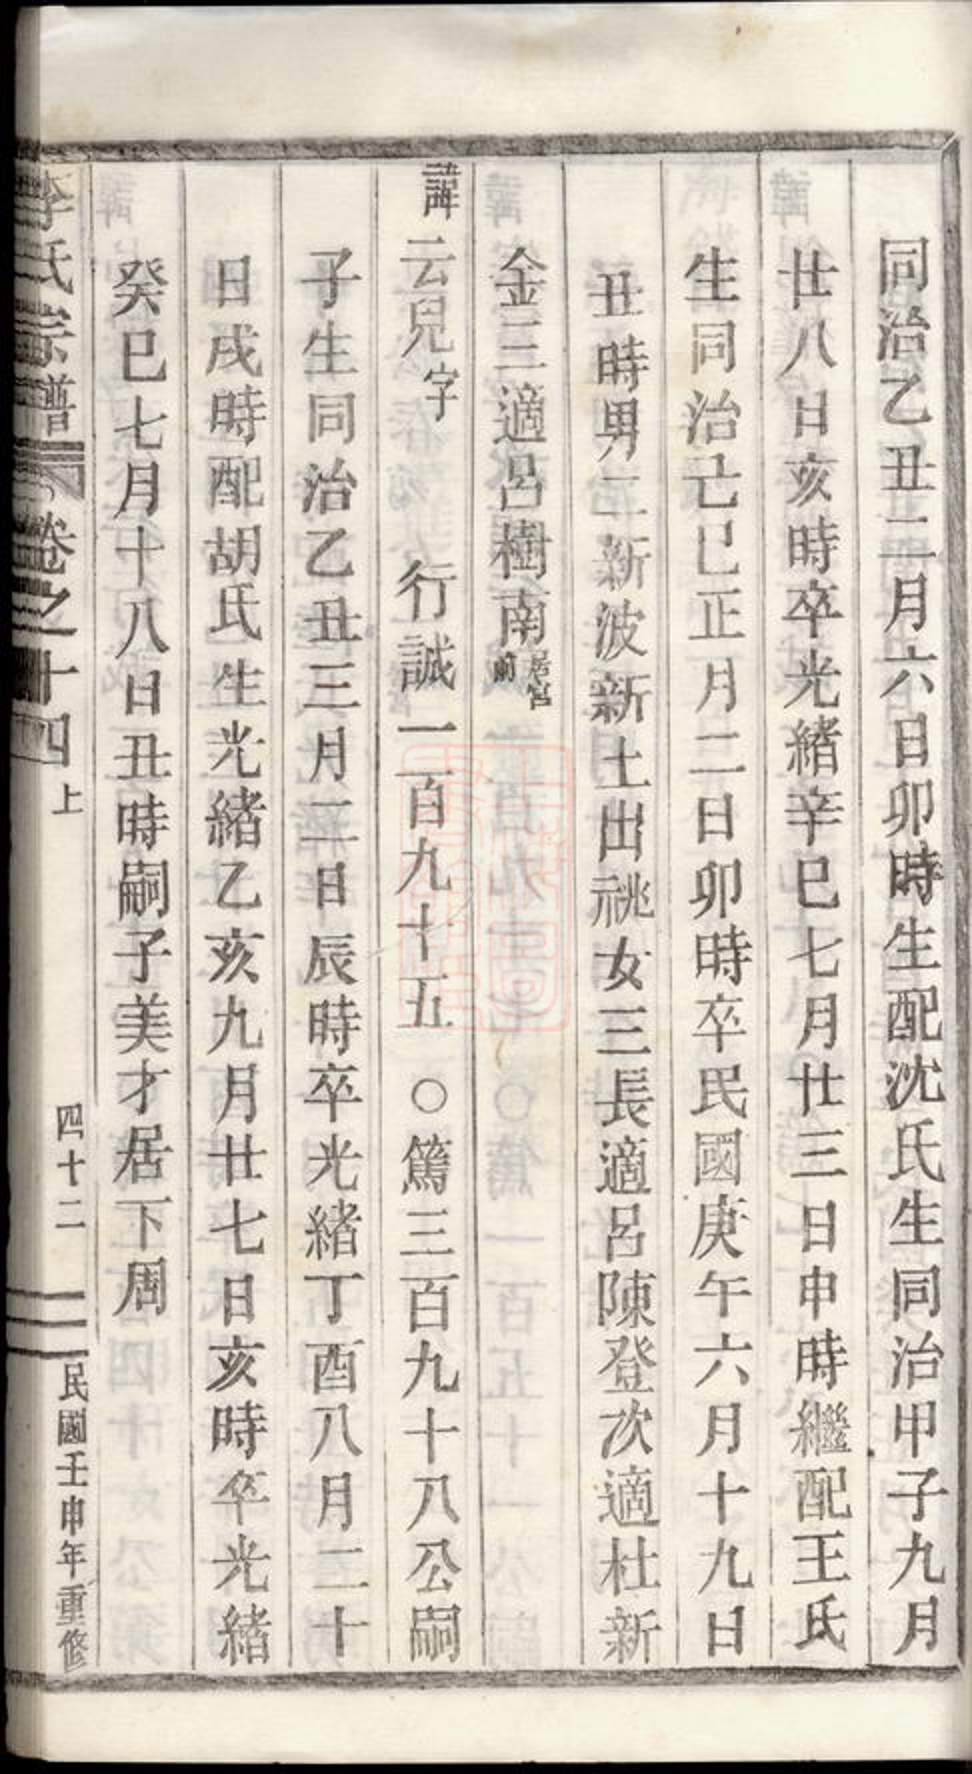 同治乙丑二月六日卯時生配沈氏生同治甲子九月
廿八日亥時卒光緒辛巳七月廿三日申時繼配王氏
生同治己巳正月二日卯時卒民國庚午六月十九日
丑時男二新波新土出祧女三長適呂陳登次適杜新
金三適呂樹南居宮前
諱云兒字 行誠一百九十五 ○篤三百九十八公嗣
子生同治乙丑三月二日辰時卒光緒丁酉八月二十
日戌時配胡氏生光緒乙亥九月廿七日亥時卒光緒
癸巳七月十八日丑時嗣子美才居下周
李氏宗譜 卷之十四上 四十二 民國壬申年重修